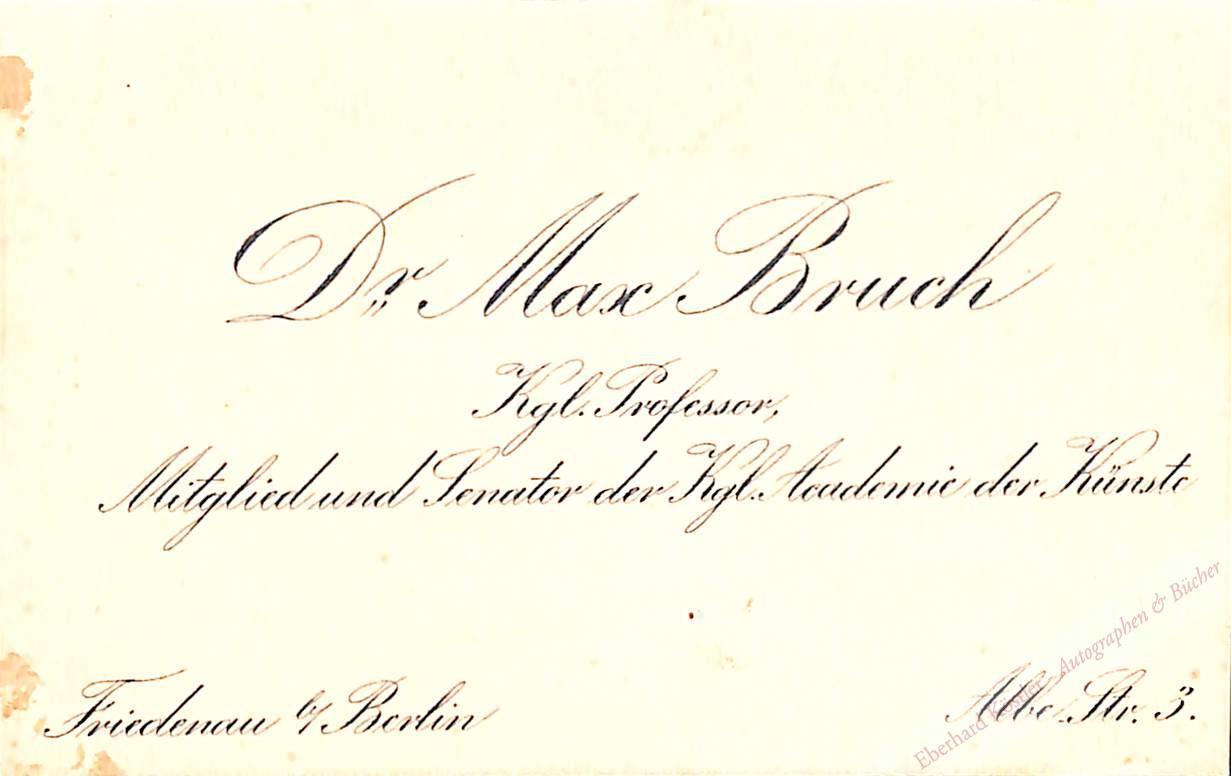 Dr. Max Bruch
Kgl. Professor,
Mitglied und Senator der Kgl. Academie der Künste
Friedenau b/ Berlin
Albe-Str. 3.
Eberhard Köstler Autographen & Bücher